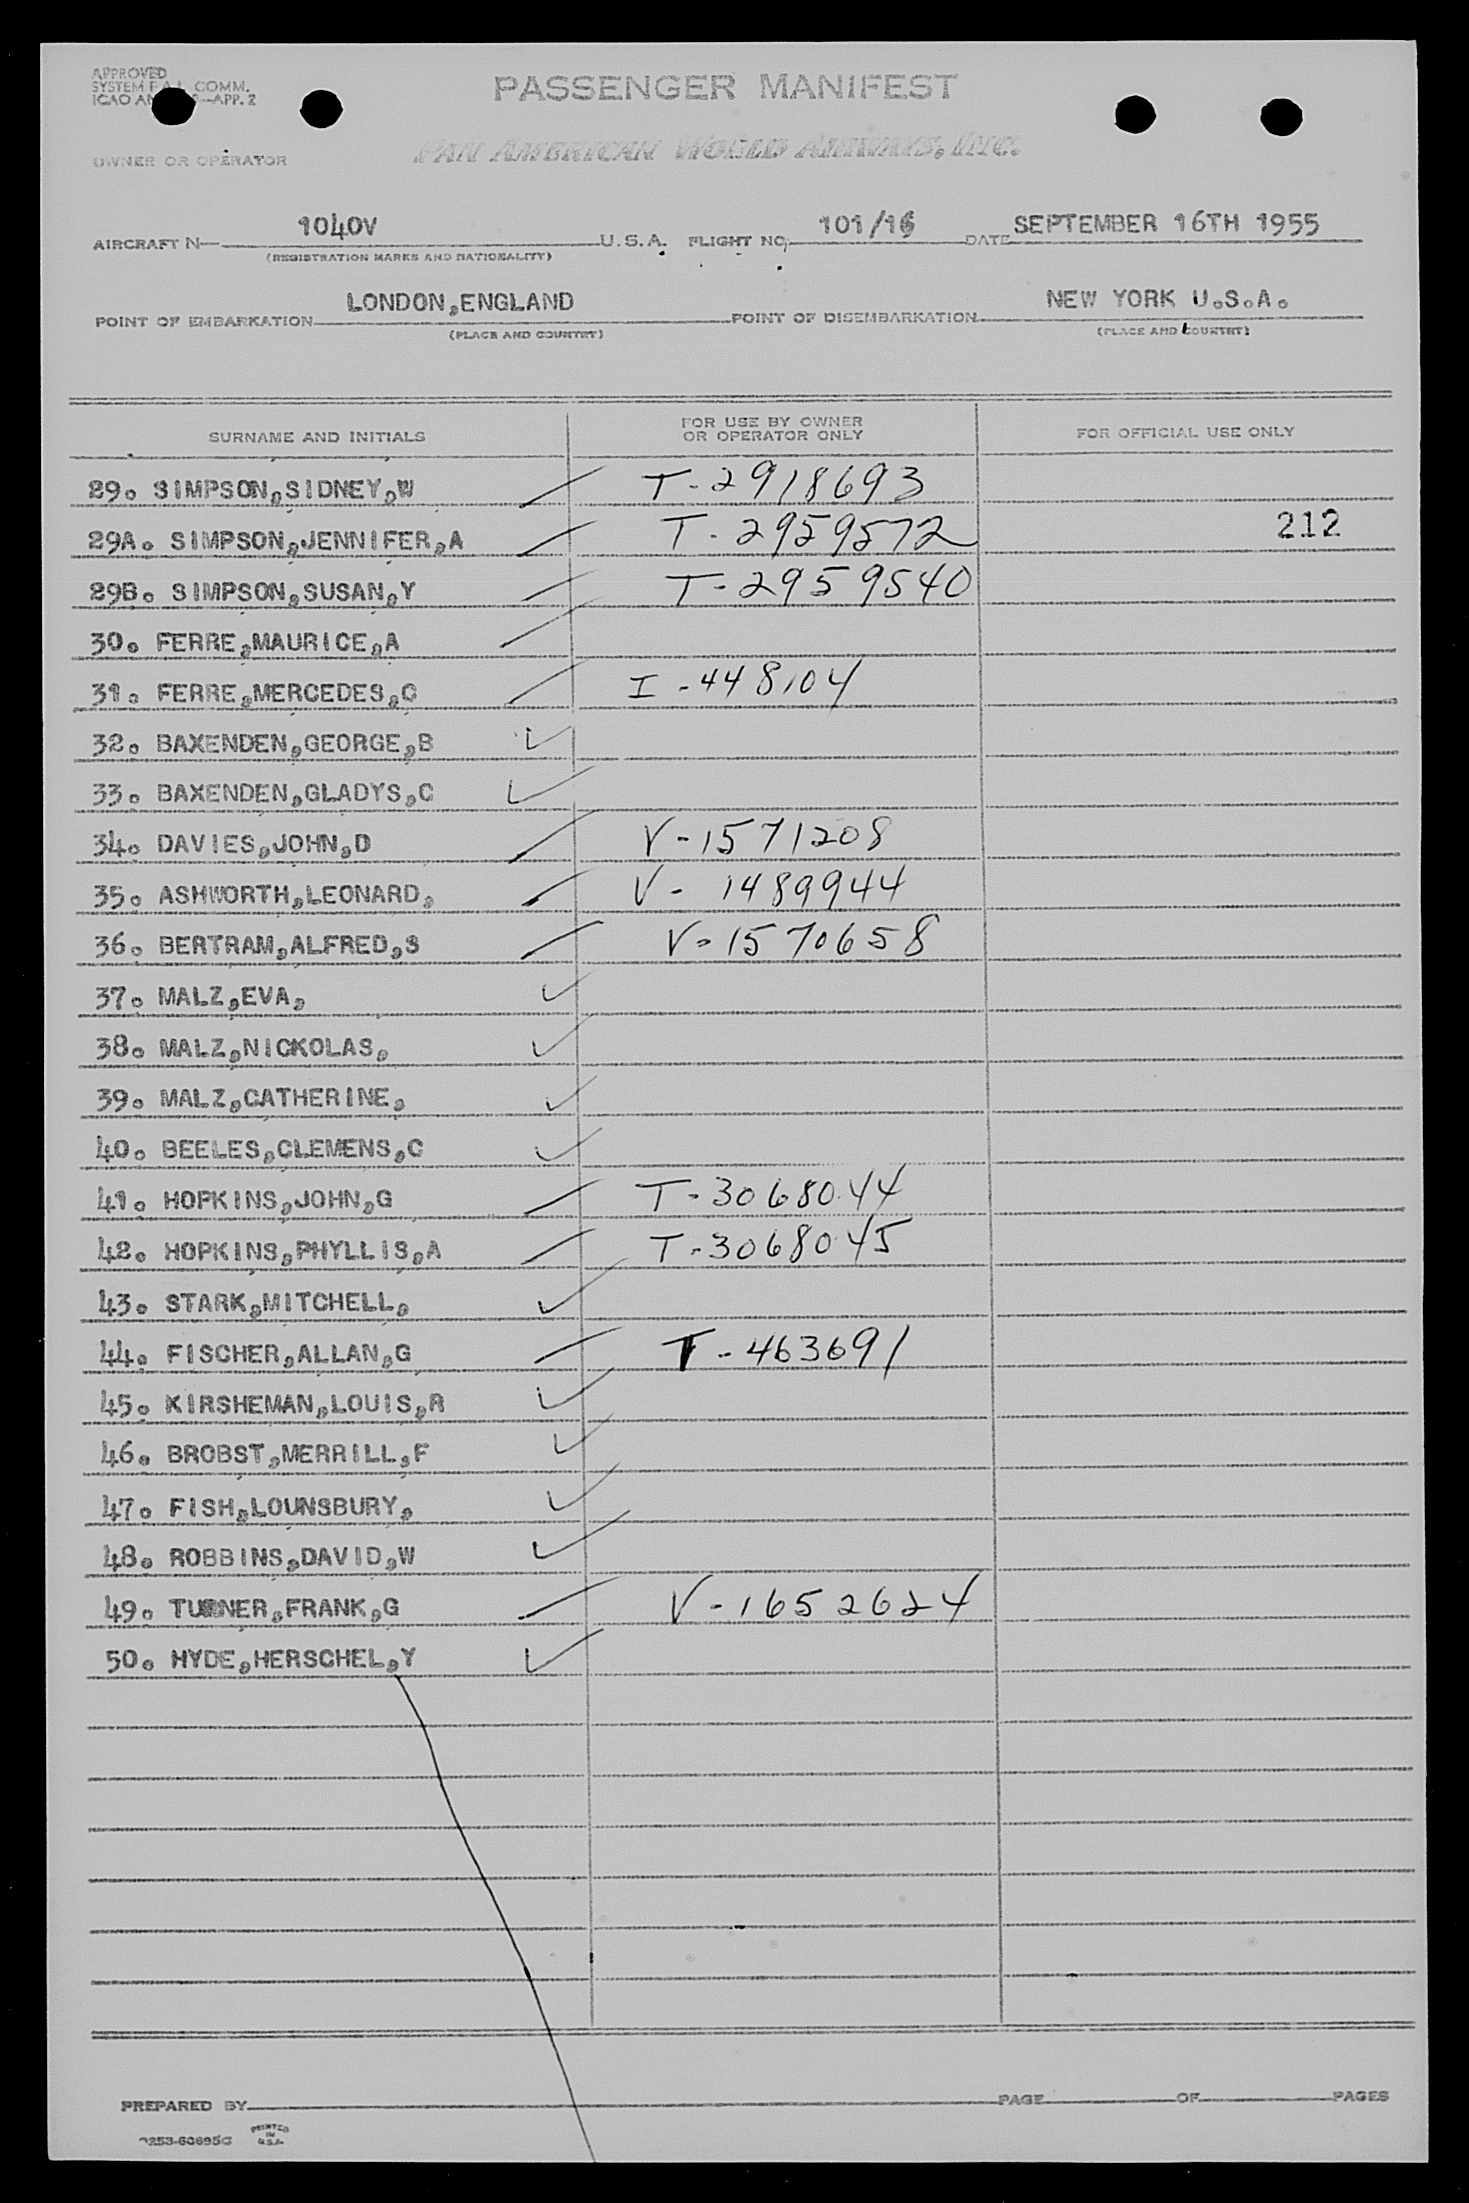 APPROVED
SYSTEM F.A.L. COMM.
ICAO AN 9—APP. 2
PASSENGER MANIFEST
OWNER OR OPERATOR
PAN AMERICAN WORLD AIRWAYS, INC.
AIRCRAFT N— 1040V U.S.A. FLIGHT NO. 101/16 DATE SEPTEMBER 16TH 1955
(REGISTRATION MARKS AND NATIONALITY)
POINT OF EMBARKATION LONDON,ENGLAND POINT OF DISEMBARKATION NEW YORK U.S.A.
(PLACE AND COUNTRY) (PLACE AND COUNTRY)
SURNAME AND INITIALS FOR USE BY OWNER OR OPERATOR ONLY FOR OFFICIAL USE ONLY
29. SIMPSON,SIDNEY,W T-2918693
29A. SIMPSON,JENNIFER,A T-2959572 212
29B. SIMPSON,SUSAN,Y T-2959540
30. FERRE,MAURICE,A
31. FERRE,MERCEDES,C I-448104
32. BAXENDEN,GEORGE,B
33. BAXENDEN,GLADYS,C
34. DAVIES,JOHN,D V-1571208
35. ASHWORTH,LEONARD, V-1489944
36. BERTRAM,ALFRED,S V-1570658
37. MALZ,EVA,
38. MALZ,NICKOLAS,
39. MALZ,CATHERINE,
40. BEELES,CLEMENS,C
41. HOPKINS,JOHN,G T-3068044
42. HOPKINS,PHYLLIS,A T-3068045
43. STARK,MITCHELL,
44. FISCHER,ALLAN,G T-463691
45. KIRSHEMAN,LOUIS,R
46. BROBST,MERRILL,F
47. FISH,LOUNSBURY,
48. ROBBINS,DAVID,W
49. TURNER,FRANK,G V-1652624
50. HYDE,HERSCHEL,Y
PREPARED BY PAGE OF PAGES
PRINTED
IN
U.S.A.